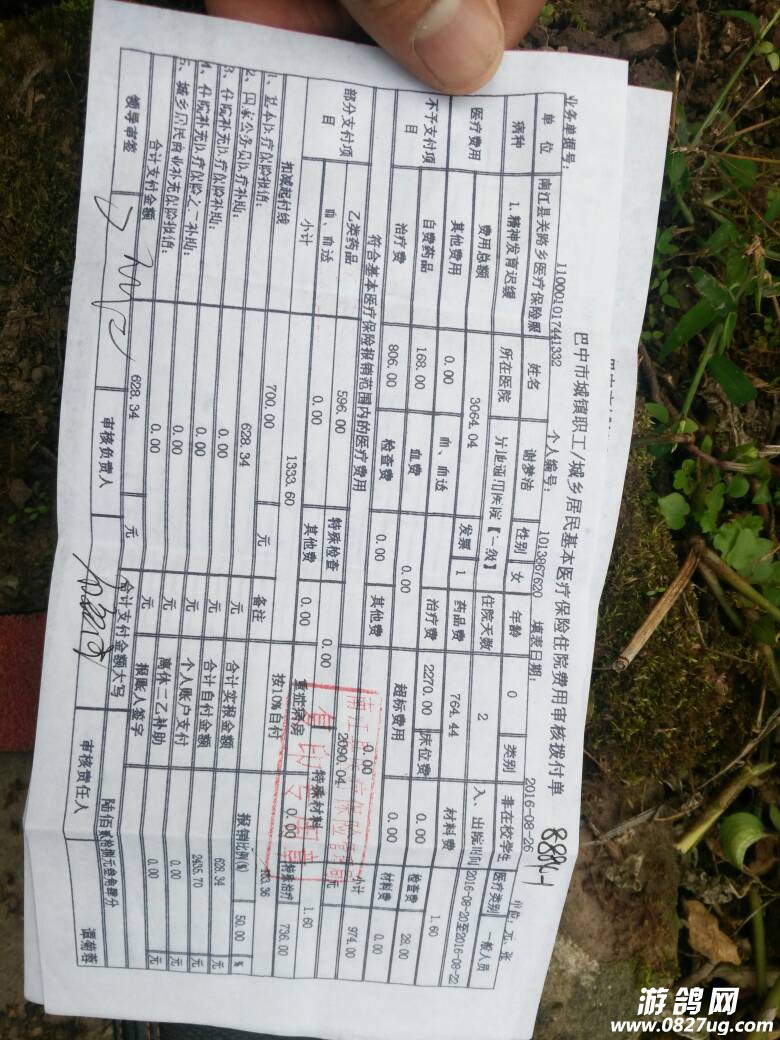 巴中市城镇职工/城乡居民基本医疗保险住院费用审核拨付单
业务单据号: 11000101744l332 个人编号: 1013867620 填表日期: 2016-08-26 单位:元、张
单 位 南江县关路乡医疗保险服 姓名 谢梦洁 性别 女 年龄 0 类别 非在校学生 医疗类别 一般人员
病种 1.精神发育迟缓 所在医院 异地通用医院【一级】 住院天数 2 入、出院时间 2016-08-20至2016-08-22
医疗费用 费用总额 3064.04 发票 1 药品费 764.44 材料费 1.60
其他费用 0.00 血、血透 治疗费 2270.00 床位费 0.00 检查费 28.00
不予支付项目 自费药品 168.00 血费 0.00 超标费用 0.00 材料费 0.00
治疗费 806.00 检查费 0.00 其他费 0.00 小计 974.00
符合基本医疗保险报销范围内的医疗费用 2090.04 元
部分支付项目 乙类药品 596.00 特殊检查 0.00 特殊材料 1.60
血、血透 0.00 其他费 0.00 重症病房 0.00 特殊治疗 736.00
小计 1333.60 按10%自付
扣减起付线 700.00 元 备注 报销比例(%) 50.00 %
1、基本医疗保险报销: 628.34 元 合计实报金额 628.34 元
2、国家公务员医疗补助: 0.00 元 合计自付金额 2435.70 元
3、住院补充医疗保险补助: 0.00 元 个人账户支付 0.00 元
4、住院补充医疗保险之二补助: 0.00 元 离休二乙补助 0.00 元
5、城乡居民商业补充保险报销: 0.00 元 报账人签字
合计支付金额 628.34 元 合计支付金额大写 陆佰贰拾捌元叁角肆分
领导审签 审核负责人 审核责任人 谭菊蓉
游鸽网
www.0827ug.com